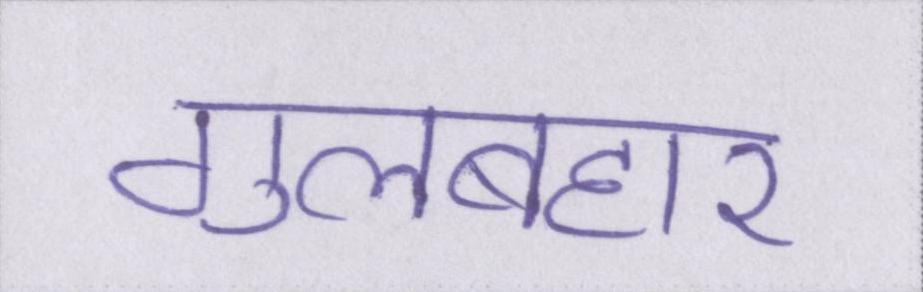 गुलबहार